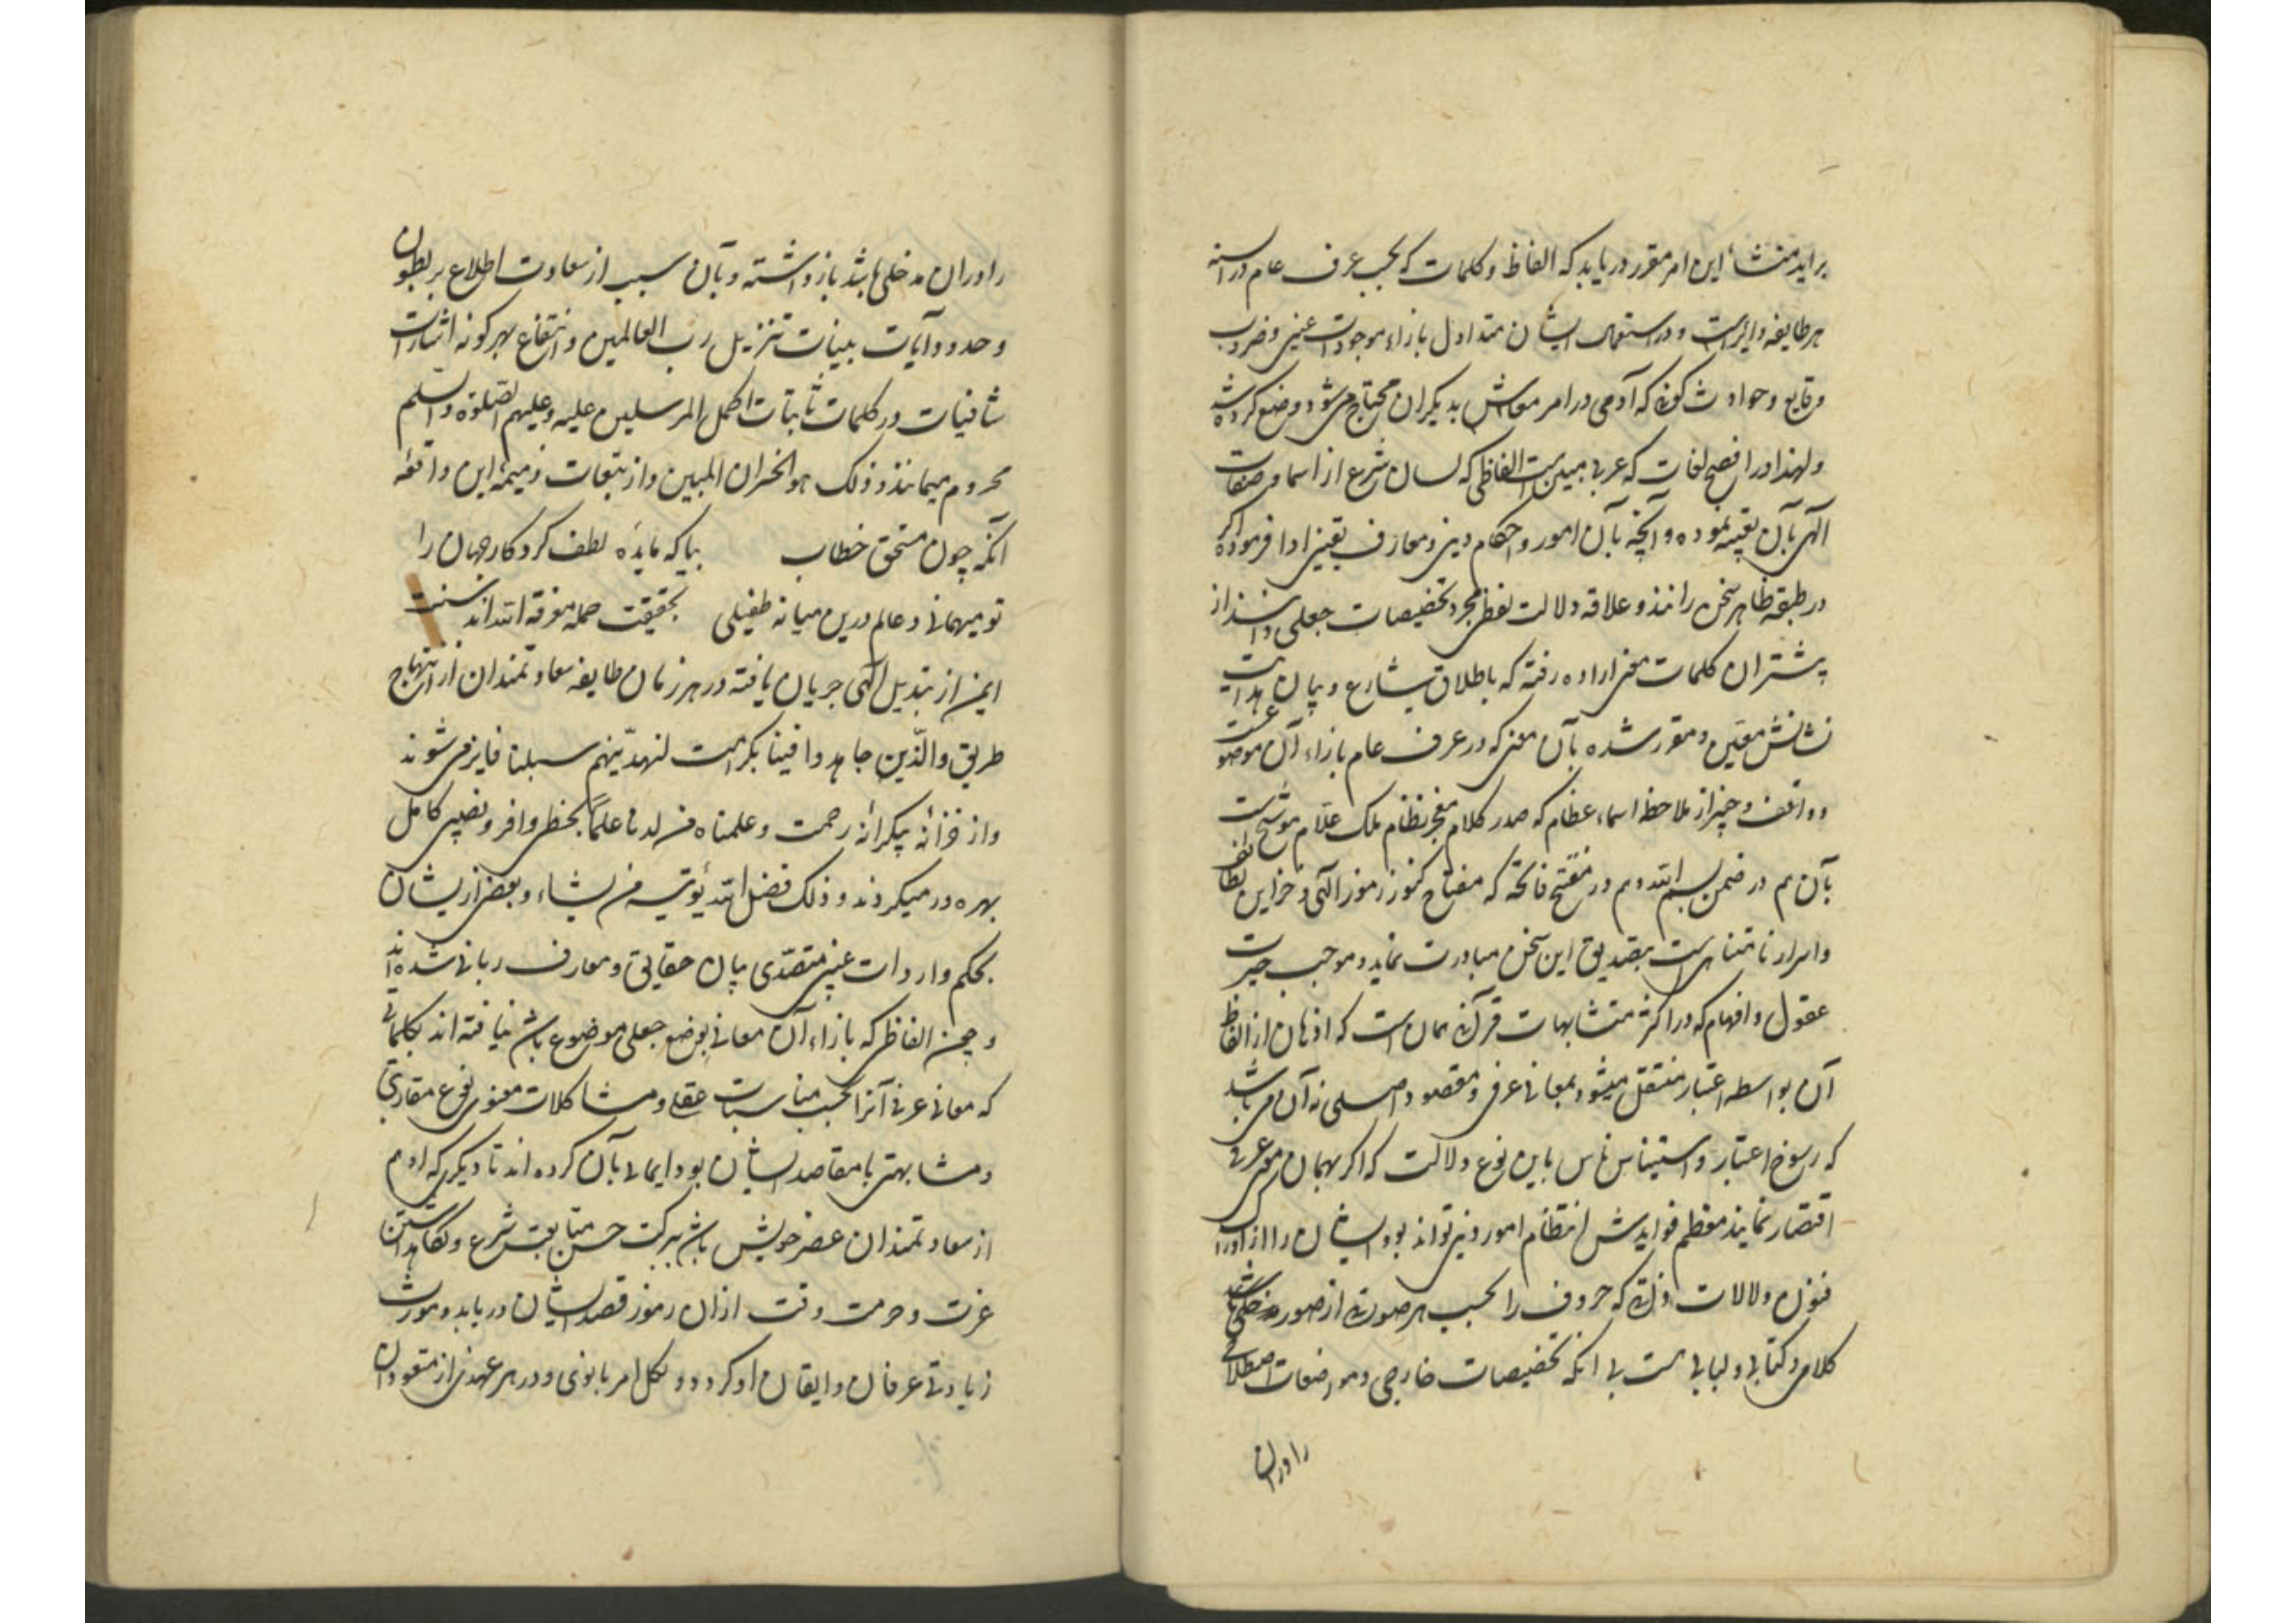 براید منشأ این امر مقرر دریابد که الفاظ و کلمات که بحسب عرف عام در السنه
هر طایفه دایرست و در استعمال ایشان متداول بازاء موجودات عینی و ضروب
وقایع و حوادث کونی که آدمی در امر معاش بدیکران محتاج می‌شود وضع کرده شد
ولهذا در افصح لغات که عربی مبین است الفاظی که لسان شرع از اسما و صفات
الهی بآن تعبیر نموده و آنچه بآن امور و احکام دینی و معارف یقینی ادا فرموده اکر
در طبقه ظاهر سخن رانند و علاقه دلالت لفظی مجرد تخصیصات جعلی دانند از
پیشتر آن کلمات معنی اراده رفته که باطلاق شارع و بیان هدایت
نشانش معین و مقرر شده بآن معنی که در عرف عام بازاء آن موضوعست
و واقف و خبیر از ملاحظه اسماء عظام که صدر کلام معجز نظام ملک علام موشح است
بآن هم در ضمن بسم الله و هم در مفتتح فاتحه که مفتاح کنوز رموز الهی و خزاین لطایف
و اسرار نامتناهی است بتصدیق این سخن مبادرت نماید و موجب حیرت
عقول و افهام که در اکثر متشابهات قرآنی همان است که اذهان از الفاظ
آن بواسطه اعتبار منتقل میشود بمعانی عرفی و مقصود اصلی نه آن می باشد
که رسوخ اعتبار و استیناس ناس باین نوع دلالت که اکر بهمان معنی عرفی
اقتصار نمایند معظم فوایدش انتظام امور دنیی تواند بود ایشان را از ادراک
فنون دلالات ذاتی که حروف را بحسب هر صورتی از صور
کلامی و کتابی و لبابی هست بی انکه تخصیصات خارجی و مواضعات اصطلاحی
را در آن
را در آن مدخلی باشد باز داشته و بآن سبب از سعادت اطلاع بر بطون
و حدود آیات بینات تنزیل رب العالمین و انتفاع بهر کونه اشارات
شافیات در کلمات ثابتات اکمل المرسلین علیه و علیهم الصلوة والسلم
محروم میمانند و ذلک هو الخسران المبین و از تبعات ذمیمهٔ این واقعه
آنکه چون مستحق خطاب بیا که مایده لطف کردکار جهان را
تو میهمانی و عالم درین میانه طفیلی بحقیقت حمله معرفة الله‌اند سنت
ایمن از تبدیل الهی جریان یافته در هر زمان طایفه سعادتمندان از انتهاج
طریق والّذین جاهدوا فینا بکرامت لنهدینّهم سبلنا فایز می شوند
و از خزانه بیکرانه رحمت و علمناه من لدنا علماً بحظی وافر و نصیبی کامل
بهره‌ور میکردند و ذلک فضل الله یؤتیه من یشاء و بعضی از یشان
بحکم واردات غیبی متصدّی بیان حقایق و معارف ربانی شده‌اند
و چون الفاظی که بازاء آن معانی بوضع جعلی موضوع باشد نیافته اند بکلماتی
که معانی عرفی آنرا بحسب مناسبات عقلی و مشاکلات معنوی نوع مقاربتی
و مشابهتی با مقاصد ایشان بود ایمائی بآن کرده اند تا دیکری که او هم
از سعادتمندان عصر خویش باشد ببرکت حسن متابعت شرع و نکاهداشتن
عزت و حرمت وقت از ان رموز قصد ایشان دریابد و مورث
زیادتی عرفان و ایقان او کردد و لکل امر بانوی و در هر عهدی از متعودان